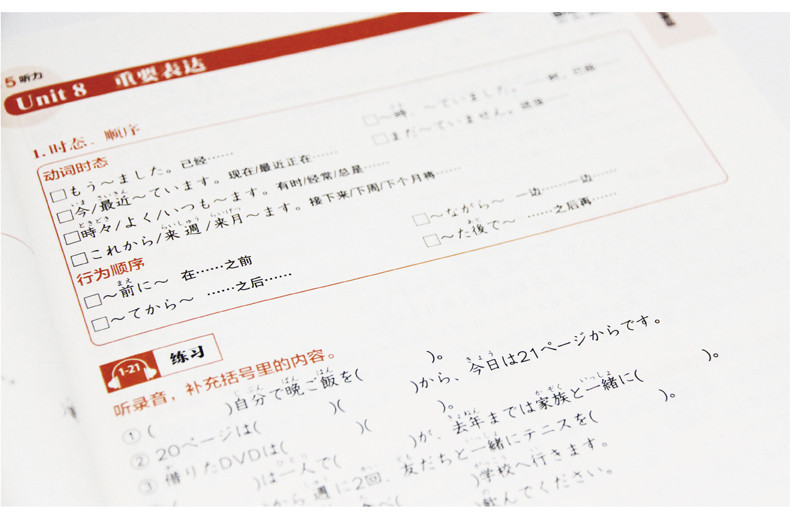 5 听力
Unit 8 重要表达
1. 时态、顺序
动词时态
□もう～ました。已经……
□～時、～ていました。……时，已经
□今/最近～ています。现在/最近正在……
□まだ～ていません。还没……
□時々/よく/いつも～ます。有时/经常/总是……
□これから/来週/来月～ます。接下来/下周/下个月将……
行为顺序
□～ながら～ 一边……一边……
□～前に～ 在……之前
□～た後で～ ……之后再……
□～てから～ ……之后……
1-21 练习
听录音，补充括号里的内容。
①( )自分で晩ご飯を( )。
②20ページは( )( )から、今日は21ページからです。
③借りたDVDは( )( )。
( )は一人で( )が、去年までは家族と一緒に( )。
( )から週に2回、友だちと一緒にテニスを( )。
( )学校へ行きます。
)飲んでください。